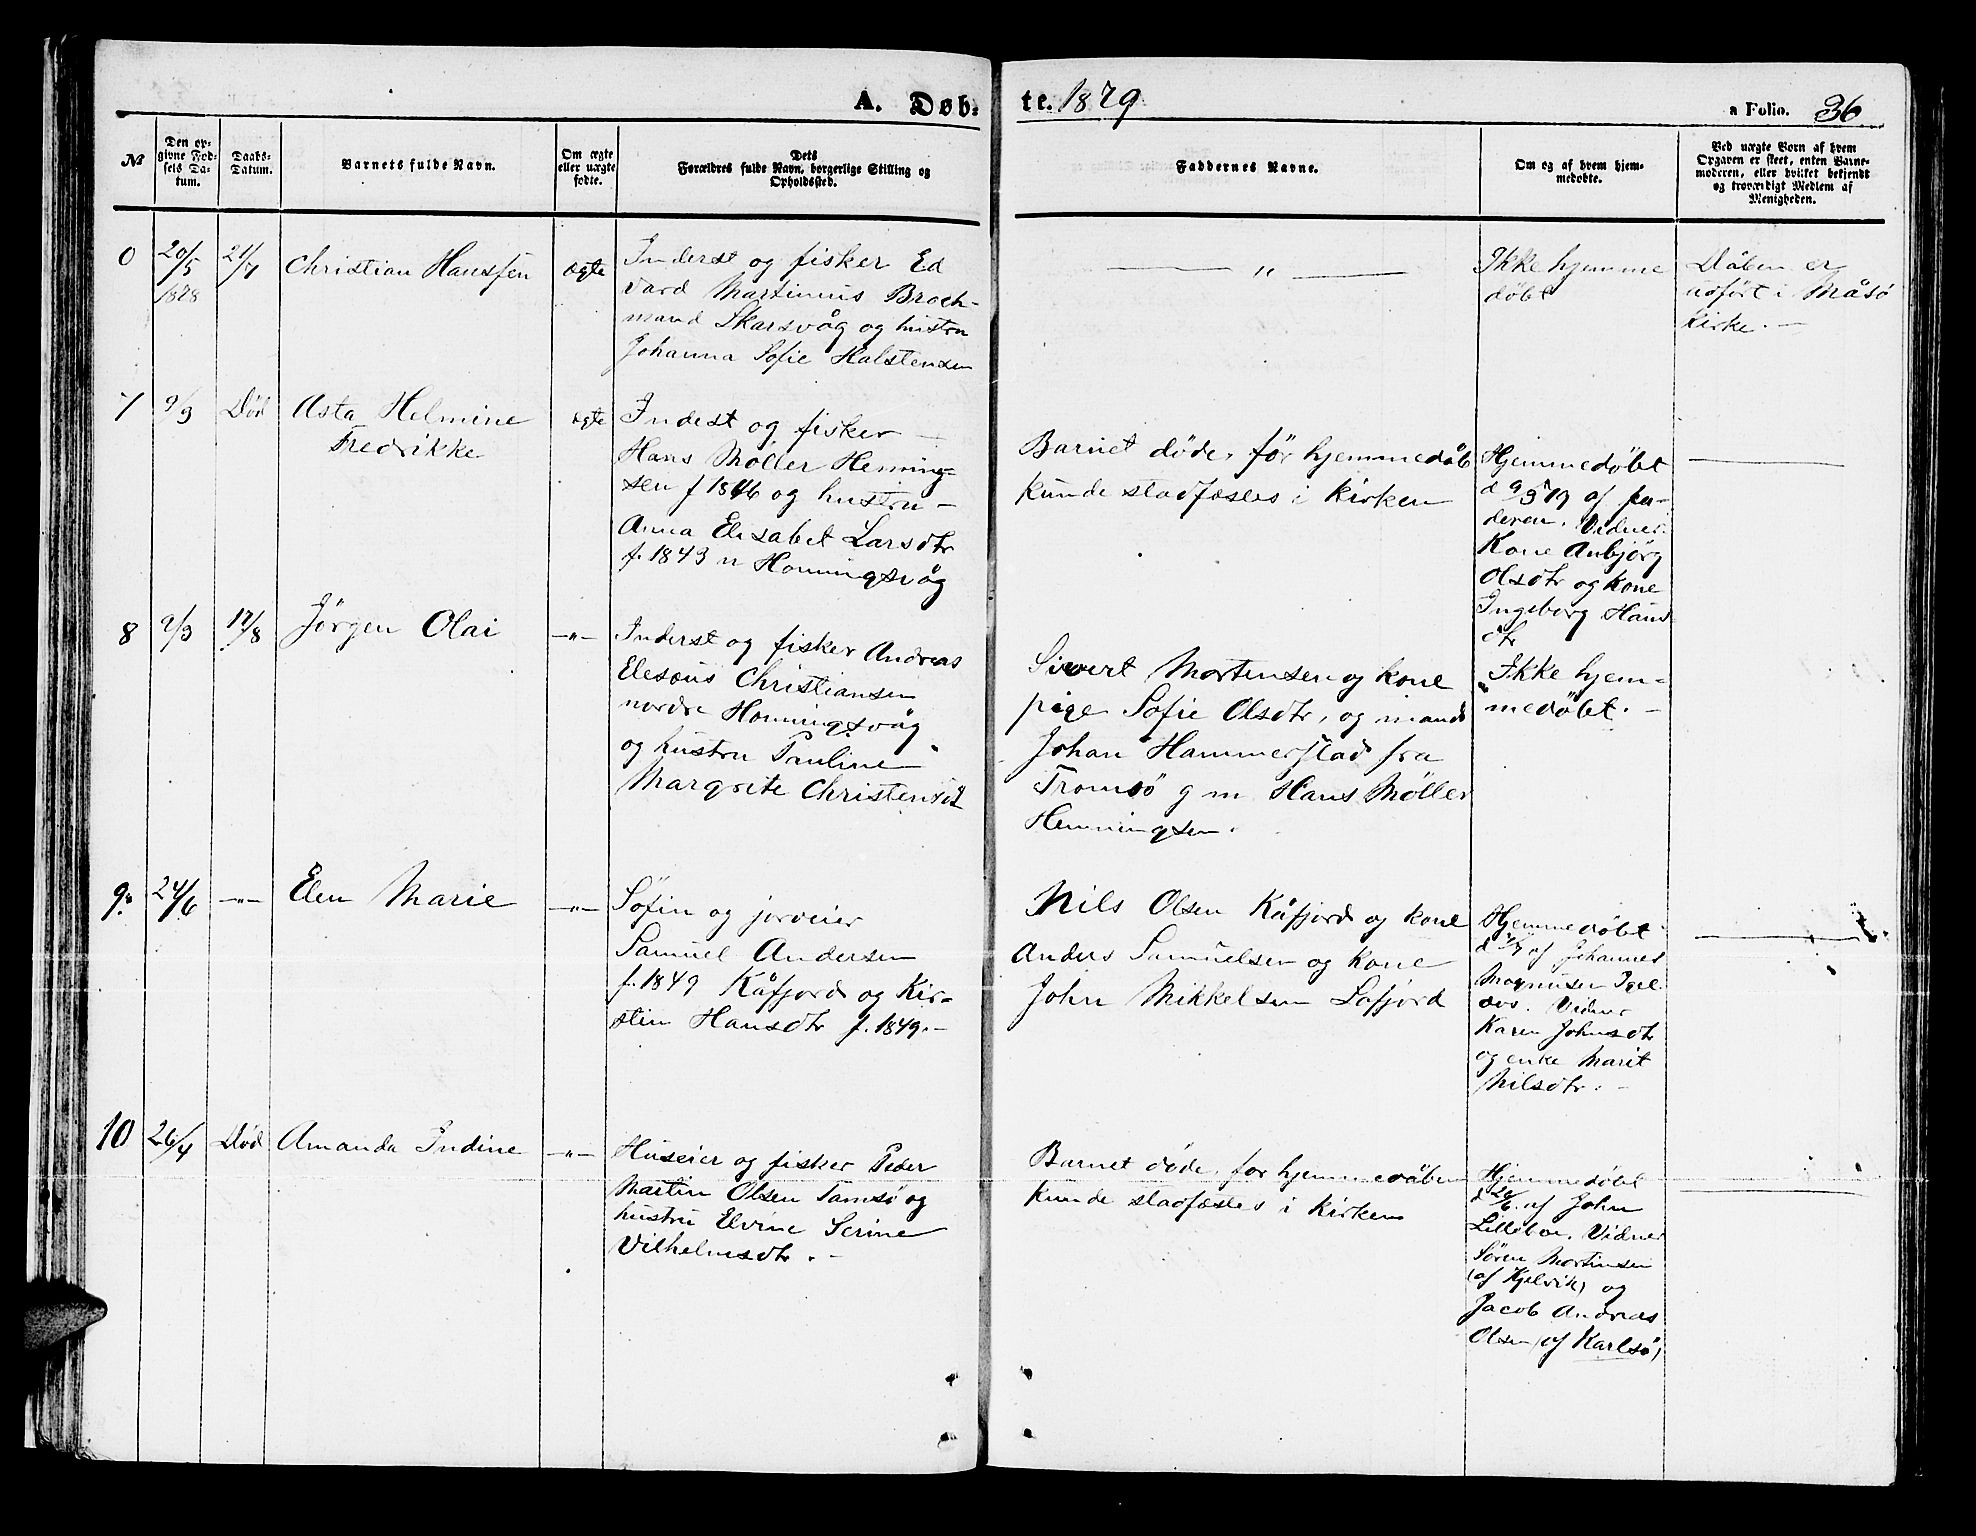 A. Døb-
te. 1879
a Folio. 36
№
Den op-
givne Fød-
sels Da-
tum.
Daabs-
Datum.
Barnets fulde Navn.
Om ægte
eller uægte
fødte.
Dets
Forældres fulde Navn, borgerlige Stilling og
Opholdssted.
Faddernes Navne.
Om og af hvem hjem-
medøbte.
Ved uægte Born af hvem
Opgaven er skeet, enten Barne-
moderen, eller hvilket bekjendt
og troværdigt Medlem af
Menigheden.
0
20/5
1878
21/7
Christian Hanssen
ægte
Inderst og fisker Ed
vard Martinius Broch-
mand Skarsvåg og hustru
Johanna Sofie Halstensen
— " —
Ikke hjemme
døbt
Dåben er
udført i Måsø
Kirke. —
7
9/3
Død
Asta Helmine
Fredrikke
ægte
Inderst og fisker —
Hans Møller Hening-
sen f 1846 og hustru —
Anna Elisabet Larsdtr
f. 1843 n Honningsvåg
Barnet døde før hjemmedåb
kunde stadfæstes i Kirken
Hjemmedøbt
d 9/3 79 af fa-
deren. Vidner
Kone Anbjörg
Olsdtr og kone
Ingeborg Hans
dtr
8
2/3
17/8
Jørgen Olai
—"—
Inderst og fisker Andreas
Elesæus Christiansen
nordre Honningsvåg
og hustru Pauline
Margrete Christensdt
Sivert Mortensen og kone
pige Sofie Olsdtr, og mand
Johan Hammerstad fra
Tromsö g m Hans Møller
Henningsen.
Ikke hjem-
medøbt. —
9.
24/6
—"—
Elen Marie
—"—
Söfin og jorveier
Samuel Andersen
f. 1849 Kåfjord og Kir-
stin Hansdtr f. 1849. —
Nils Olsen Kåfjord og kone
Anders Samuelsen og kone
John Mikkelsen Lafjord
Hjemmedøbt
af Johannes
Magnusen
Vidner
Karen Johnsdtr
og enke Marit
Nilsdtr. —
10
26/4
Død
Amanda Indine
—"—
Huseier og fisker Peder
Martin Olsen Tamsö og
hustru Elvine Serine
Vilhelmsdtr. —
Barnet døde for hjemmedåben
kunde stadfæstes i Kirken
Hjemmedøbt
d 26/6 af John
Lillebo. Vidner
Sören Mortinsen
(af Kjelvik) og
Jacob Andreas
Olsen (af Karlsö)